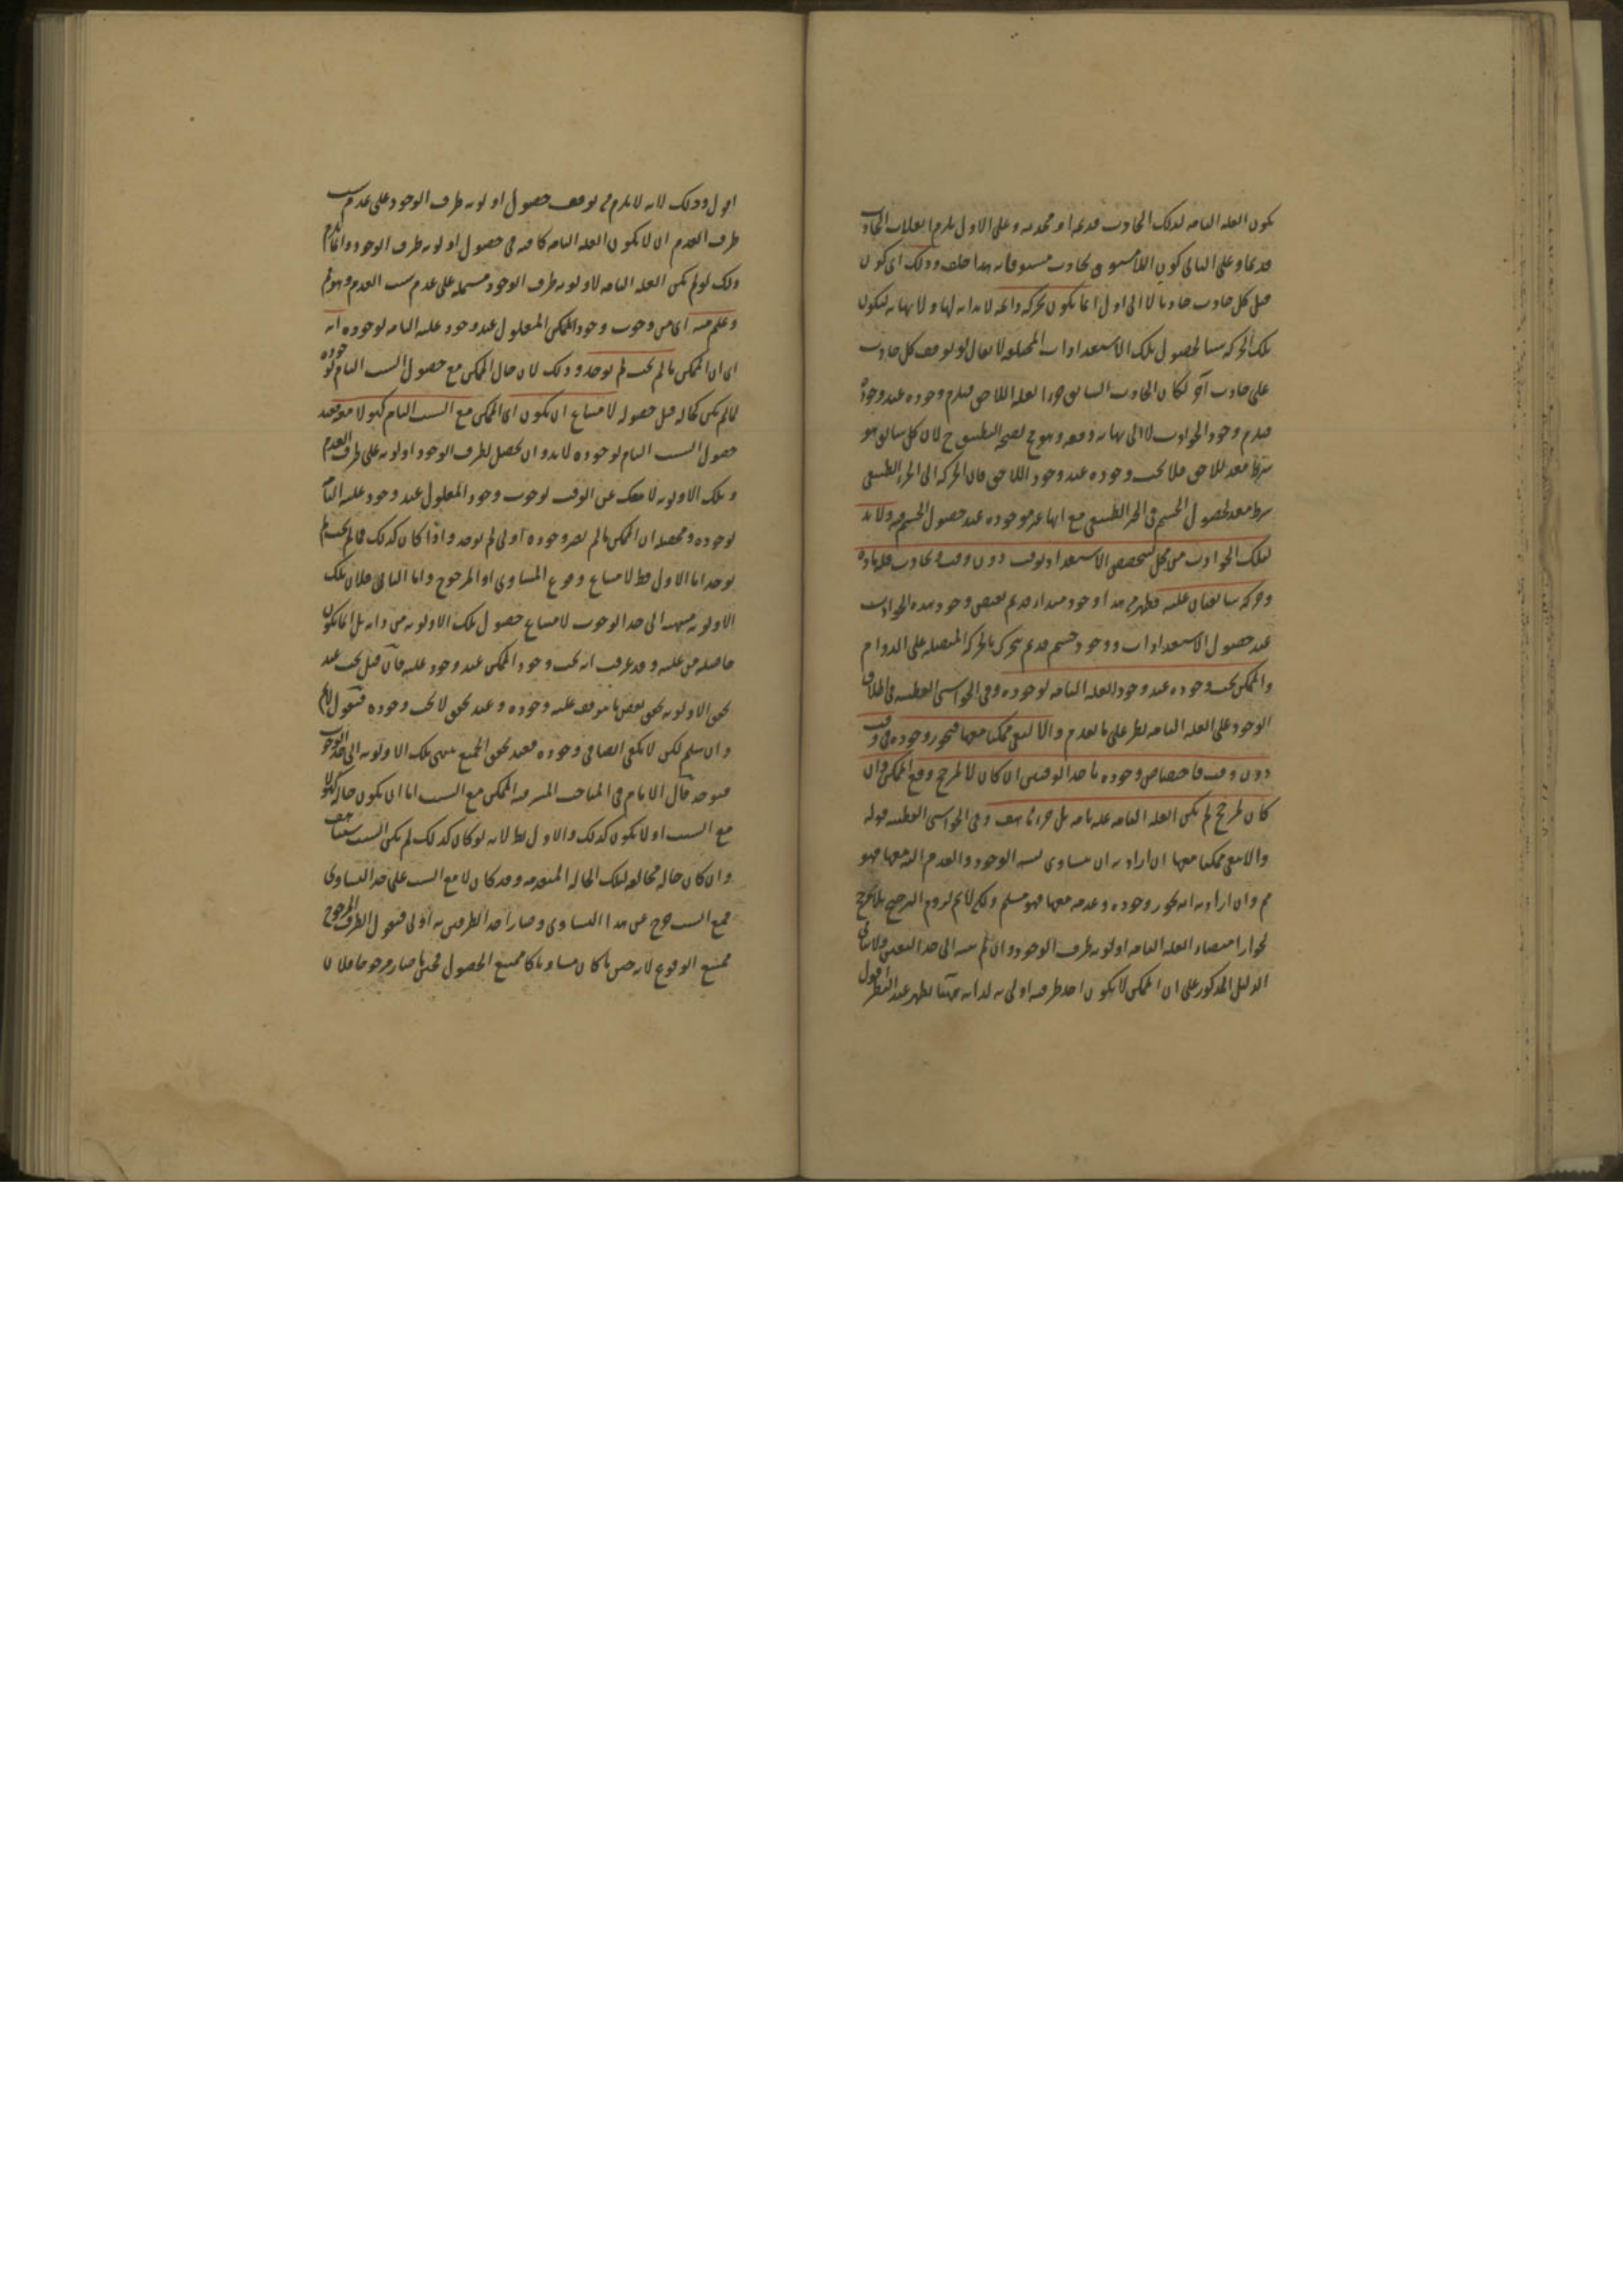 يكون العلة التامة لذلك الحادث قديمة او محدثة وعلى الاول يلزم انقلاب الحادث
قديما وعلى الثانى كون اللامسبوق بحادث مسبوقا به هذا خلف وذلك اى كون
قبل كل حادث حادثا لا الى اول انما يكون بحركة دائمة لا بداية لها ولا نهاية ليكون
تلك الحركة سببا لحصول تلك الاستعدادات المختلفة لا يقال لو توقف كل حادث
على حادث آخر لكان الحادث السابق جزءا لعلة اللاحق فيلزم وجوده عند وجوده
فيلزم وجود الحوادث لا الى نهاية دفعة وهو مح لصحة التطبيق ح لان كل سابق هو
شرط معد للاحق فلا يجب وجوده عند وجود اللاحق فان الحركة الى الحيز الطبيعى
شرط معد لحصول الجسم فى الحيز الطبيعى مع انها غير موجودة عند حصول الجسم فيه ولا بد
لتلك الحوادث من محل ليتخصص الاستعداد بوقت دون وقت وبحادث فله مادة
وحركة سابقتان عليه فظهر من هذا وجود مبدأ قديم يفيض وجود هذه الحوادث
عند حصول الاستعدادات ووجود جسم قديم يتحرك بالحركة المتصلة على الدوام
والممكن يجب وجوده عند وجود العلة التامة لوجوده وفى الحواشى القطبية فى اطلاق
الوجود على العلة التامة نظر على ما تقدم والا لبقى ممكنا معها فيجوز وجوده فى وقت
دون وقت فاختصاص وجوده باحد الوقتين ان كان لا لمرجح وقع الممكن وان
كان لمرجح لم يكن العلة التامة علة تامة بل جزءها هف وفى الحواشى القطبية قوله
والا بقى ممكنا معها ان اراد به ان يتساوى نسبة الوجود والعدم اليه معها فهو
مم وان اراد به انه يجوز وجوده وعدمه معها فهو مسلم ولكن لانم لزوم الترجيح بلا مرجح
لجواز اقتضاء العلة التامة اولوية طرف الوجود وان لم ينته الى حد التعين ولا يتأتى
الدليل المذكور على ان الممكن لا يكون احد طرفيه اولى به لذاته ههنا يظهر عند النظر اقول
اقول وذلك لانه لا يلزم من توقف حصول اولوية طرف الوجود على عدم سبب
طرف العدم ان لا يكون العلة التامة كافية فى حصول اولوية طرف الوجود وانما يلزم
ذلك لو لم يكن العلة التامة لاولوية طرف الوجود مشتملة على عدم سبب العدم وهو مم
وعلم منه اى من وجوب وجود الممكن المعلول عند وجود علته التامة لوجوده انه
اى ان الممكن ما لم يجب لم يوجد وذلك لان حال الممكن مع حصول السبب التام لوجوده
لما لم يكن كحاله قبل حصوله لامتناع ان يكون اى الممكن مع السبب التام كهو لا معه فعند
حصول السبب التام لوجوده لا بد وان يحصل لطرف الوجود اولوية على طرف العدم
وتلك الاولوية لا تنفك عن الوقت لوجوب وجود المعلول عند وجود علته التامة
لوجوده ومحصله ان الممكن ما لم يصر وجوده اولى لم يوجد واذا كان كذلك فما لم يجب لم
يوجد اما الاول فظ لامتناع وقوع المساوى او المرجوح واما الثانى فلان تلك
الاولوية منتهية الى حد الوجوب لامتناع حصول تلك الاولوية من ذاته بل انما يكون
حاصلة من علته وقد عرفت انه يجب وجود الممكن عند وجود علته فان قيل يجب عند
تحقق الاولوية تحقق بعض ما يتوقف عليه وجوده وعند تحقق لا يجب وجوده فنقول لانم
وان سلم لكن لا يكفى ايضا فى وجوده فعند تحقق الجميع ينتهى تلك الاولوية الى حد الوجوب
فيوجد قال الامام فى المباحث المشرقية الممكن مع السبب اما ان يكون حاله كهو لا
مع السبب او لا يكون كذلك والاول بط لانه لو كان كذلك لم يكن السبب سببا هف
وان كان حاله مخالفة لتلك الحالة المتقدمة وقد كان لا مع السبب على حد التساوى
فمع السبب خرج عن هذا التساوى وصار احد الطرفين به اولى فنقول الطرف المرجوح
ممتنع الوقوع لانه حين ما كان مساويا كان ممتنع الحصول فحين ما صار مرجوحا فلان